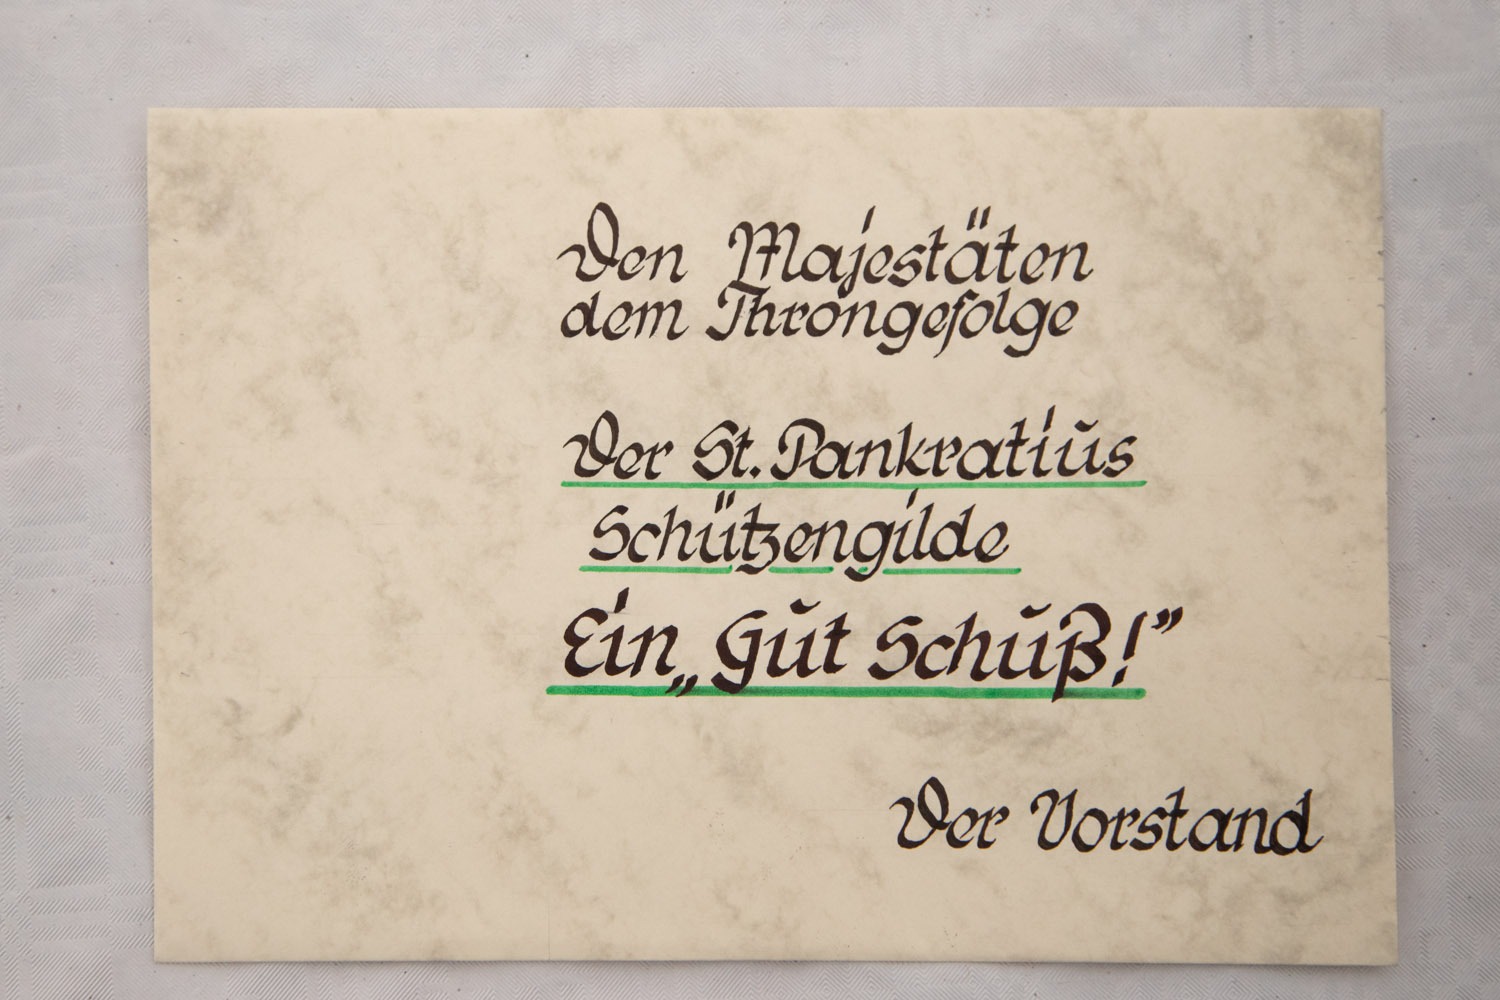 Den Majestäten
dem Throngefolge
Der St. Pankratius
Schützengilde
Ein „Gut Schuß!”
Der Vorstand